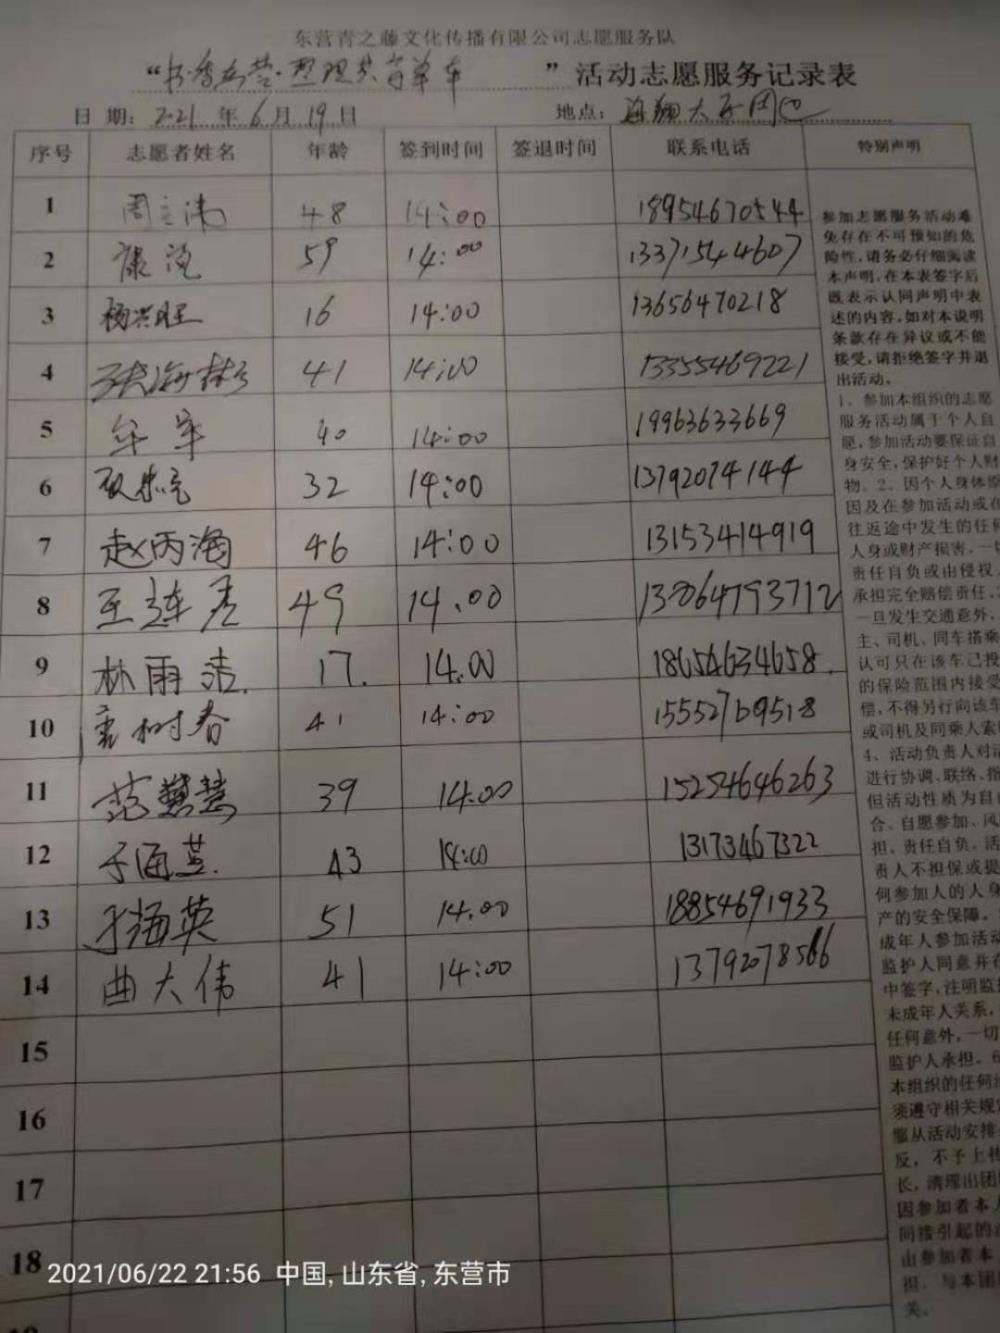 东营青之藤文化传播有限公司志愿服务队
“书香东营·整理共享单车”活动志愿服务记录表
日期：2021年6月19日 地点：海翔大厦周边
序号 志愿者姓名 年龄 签到时间 签退时间 联系电话 特别声明
1 周立涛 48 14:00 18954670544
2 59 14:00 13371544607
3 杨兴旺 16 14:00 13656470218
4 张海彬 41 14:00 13355469221
5 牟军 40 14:00 19963633669
6 32 14:00 13792074144
7 赵丙海 46 14:00 13153414919
8 王连青 49 14.00
9 林雨洁. 17. 14.00 18654634658.
10 树春 41 14:00 15552769518
11 范慧慧 39 14:00 15254646263
12 于海燕. 43 14:00 13173467322
13 于海英 51 14.00 18854691933
14 曲大伟 41 14:00 13792078566
15
16
17
18
参加志愿服务活动难
免存在不可预知的危
险性，请务必仔细阅读
本声明，在本表签字后
既表示认同声明中表
述的内容，如对本说明
条款存在异议或不能
接受，请拒绝签字并退
出活动。
1、参加本组织的志愿
服务活动属于个人自
愿，参加活动要保证自
身安全，保护好个人财
物。2、因个人身体原
因及在参加活动或在
往返途中发生的任何
人身或财产损害，一切
责任自负或由侵权人
承担完全赔偿责任，3
一旦发生交通意外，
主、司机、同车搭乘
认可只在该车已投
的保险范围内接受
偿，不得另行向该车
或司机及同乘人索
4、活动负责人对活
进行协调、联络、指
但活动性质为自
合、自愿参加、风
担、责任自负。活
责人不担保或提
何参加人的人身
产的安全保障。
成年人参加活动
监护人同意并在
中签字，注明监护
未成年人关系，
任何意外，一切
监护人承担。6
本组织的任何
须遵守相关规定
服从活动安排
反，不予上
长，清理出团
因参加者本人
间接引起的
由参加者本
担，与本团
关。
2021/06/22 21:56 中国，山东省，东营市